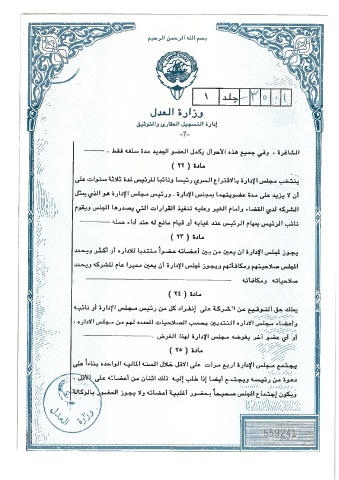 بسم الله الرحمن الرحيم
جلد ١
وزارة العدل
إدارة التسجيل العقاري والتوثيق
-7-
الشاغرة ، وفي جميع هذه الأحوال يكمل العضو الجديد مدة سلفه فقط .
مادة ( ٢٢ )
ينتخب مجلس الإدارة بالاقتراع السري رئيسا ونائبا للرئيس لمدة ثلاثة سنوات على
أن لا يزيد على مدة عضويتهما بمجلس الإدارة . ورئيس مجلس الإدارة هو الذي يمثل
الشركة لدى القضاء وأمام الغير وعليه تنفيذ القرارات التي يصدرها المجلس ويقوم
نائب الرئيس بمهام الرئيس عند غيابه أو قيام مانع له عند أداء عمله
مادة ( ٢٣ )
يجوز لمجلس الإدارة ان يعين من بين أعضائه عضوا منتدبا للاداره أو أكثر ويحدد
المجلس صلاحيتهم ومكافآتهم ويجوز لمجلس الإدارة أن يعين مديرا عام للشركه ويحدد
صلاحياته ومكافأته
مادة ( ٢٤ )
يملك حق التوقيع عن الشركة على إنفراد كل من رئيس مجلس الإدارة أو نائبه
وأعضاء مجلس الاداره المنتدبين بحسب الصلاحيات المحدده لهم من مجلس الاداره .
أو أي عضو آخر يفوضه مجلس الإدارة لهذا الغرض .
مادة ( ٢٥ )
يجتمع مجلس الإدارة اربع مرات على الاقل خلال السنه الماليه الواحده بناءاً على
دعوة من رئيسه ويجتمع أيضا إذا طلب إليه ذلك اثنان من أعضائه على الأقل .
ويكون إجتماع المجلس صحيحاً بحضور أغلبية أعضائه ولا يجوز الحضور بالوكالة
وزارة العدل
559241